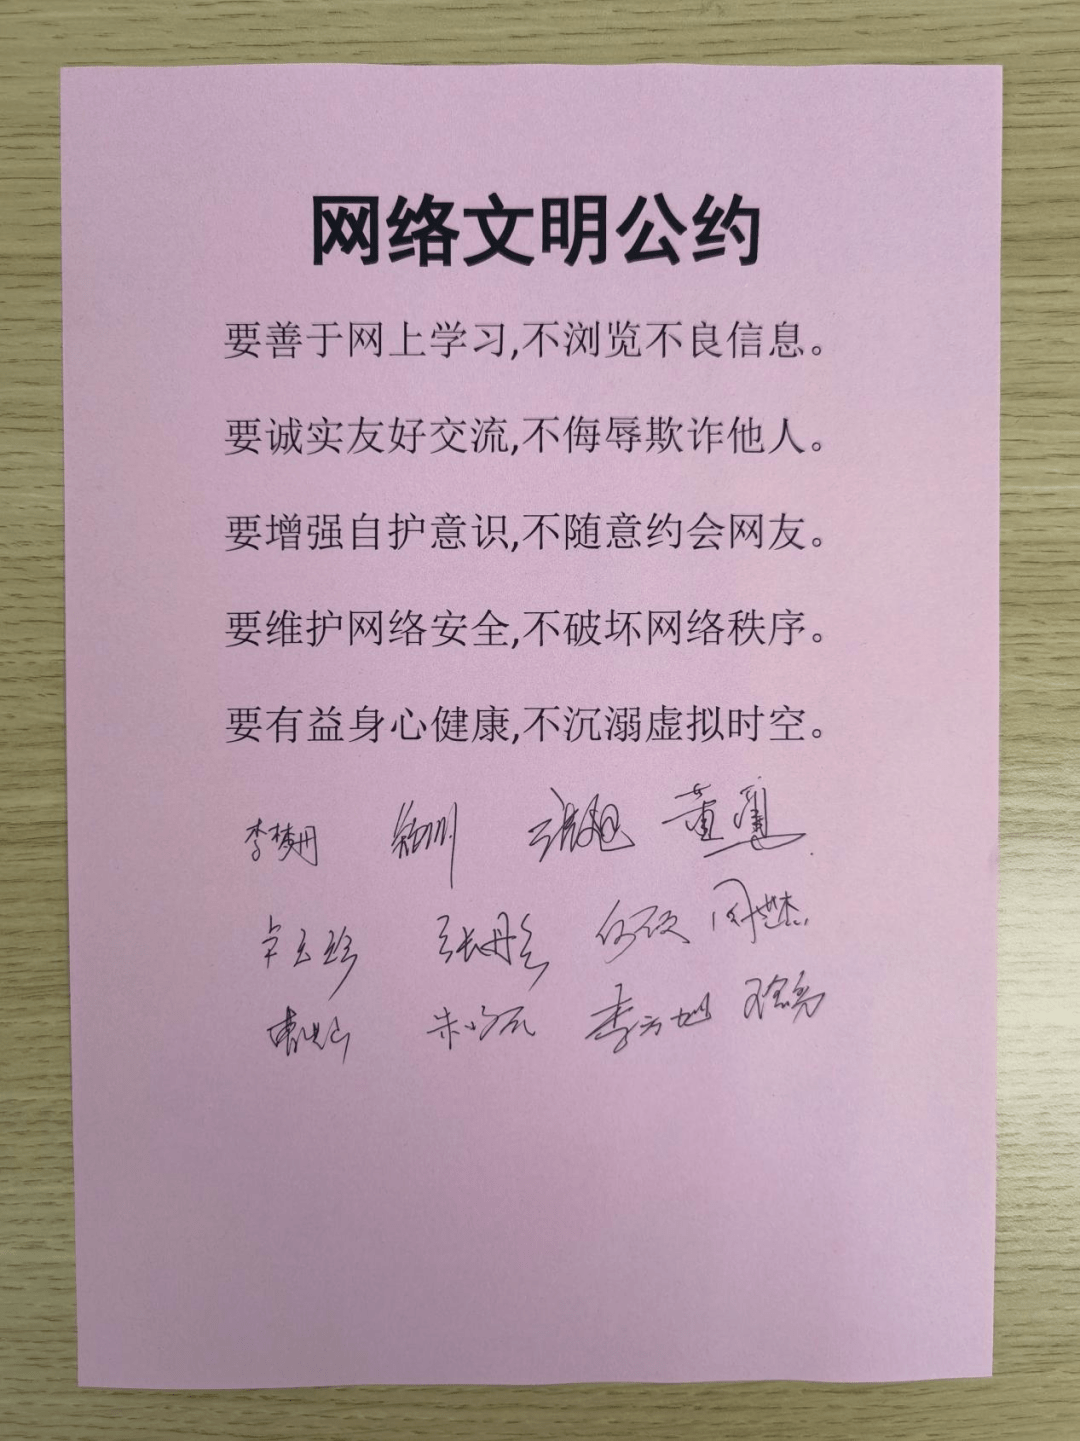 网络文明公约
要善于网上学习,不浏览不良信息。
要诚实友好交流,不侮辱欺诈他人。
要增强自护意识,不随意约会网友。
要维护网络安全,不破坏网络秩序。
要有益身心健康,不沉溺虚拟时空。
李梦丹 董
张丹 周
朱 李